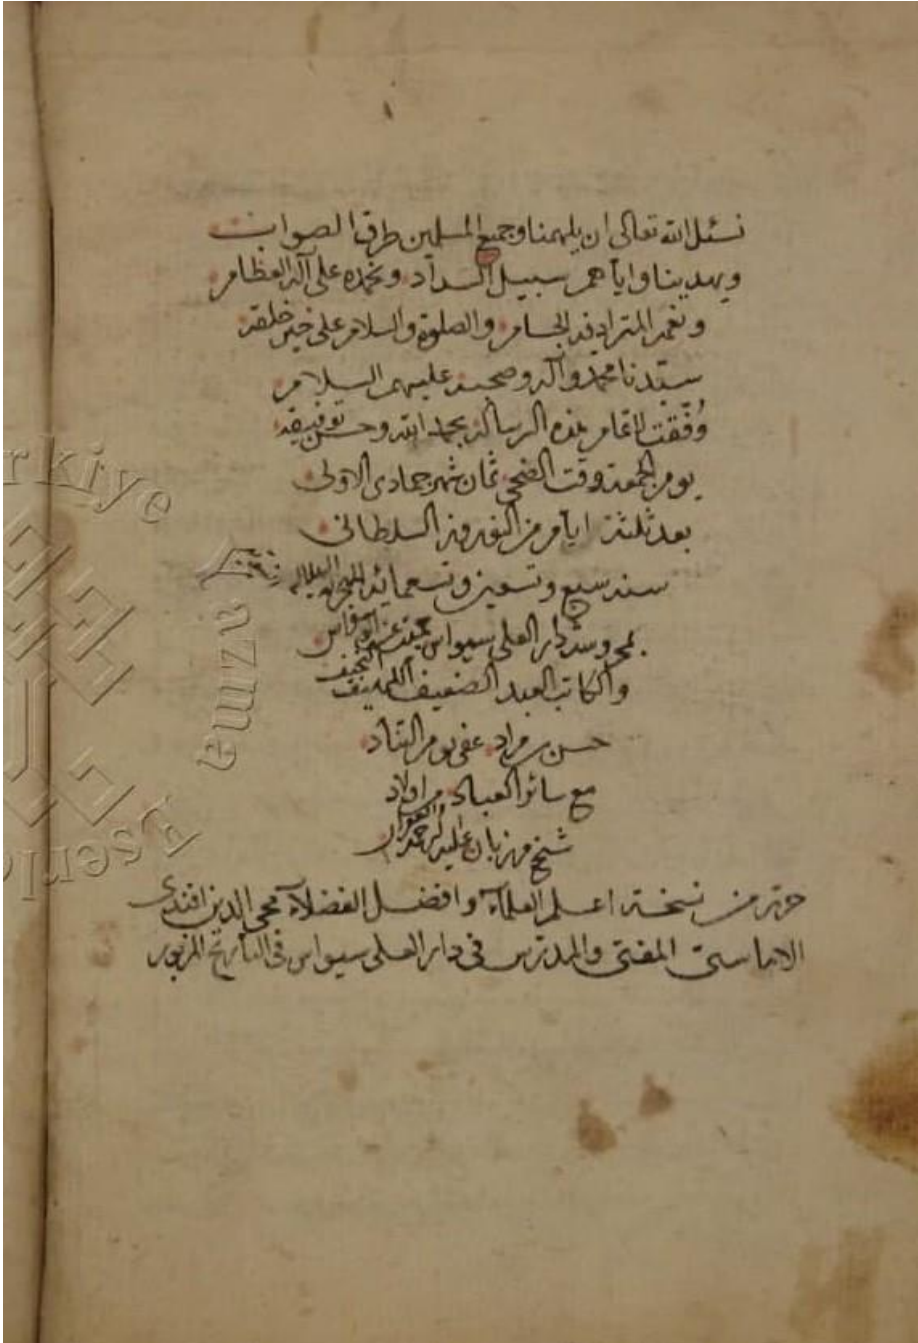 نسئل الله تعالى ان يلهمنا وجميع المسلمين طرق الصواب
ويهدينا واياهم سبيل السداد ونحمده على آلائه العظام
ونعمه المترادفة الجسام والصلوة والسلام على خير خلقه
سيدنا محمد وآله وصحبه عليهم السلام
وُفّقت لاتمام هذه الرسالة بحمد الله وحسن توفيقه
يوم الجمعة وقت الضحى ثمان شهر جمادى الاولى
بعد ثلثة ايام من النوروز السلطانى
سنة سبع وتسعين وتسعمائة الهجرية
بمحروسة دار العلى سيواس
والكاتب العبد الضعيف النحيف
حسن بن مراد عفى يوم التناد
مع سائر العباد من اولاد
شيخ مرزبان عليه الرحمة
حرر من نسخة اعلم العلماء وافضل الفضلاء محى الدين افندى
الاماسى المفتى والمدرس فى دار العلى سيواس فى التأريخ المزبور
Türkiye
Yazma
Eserler